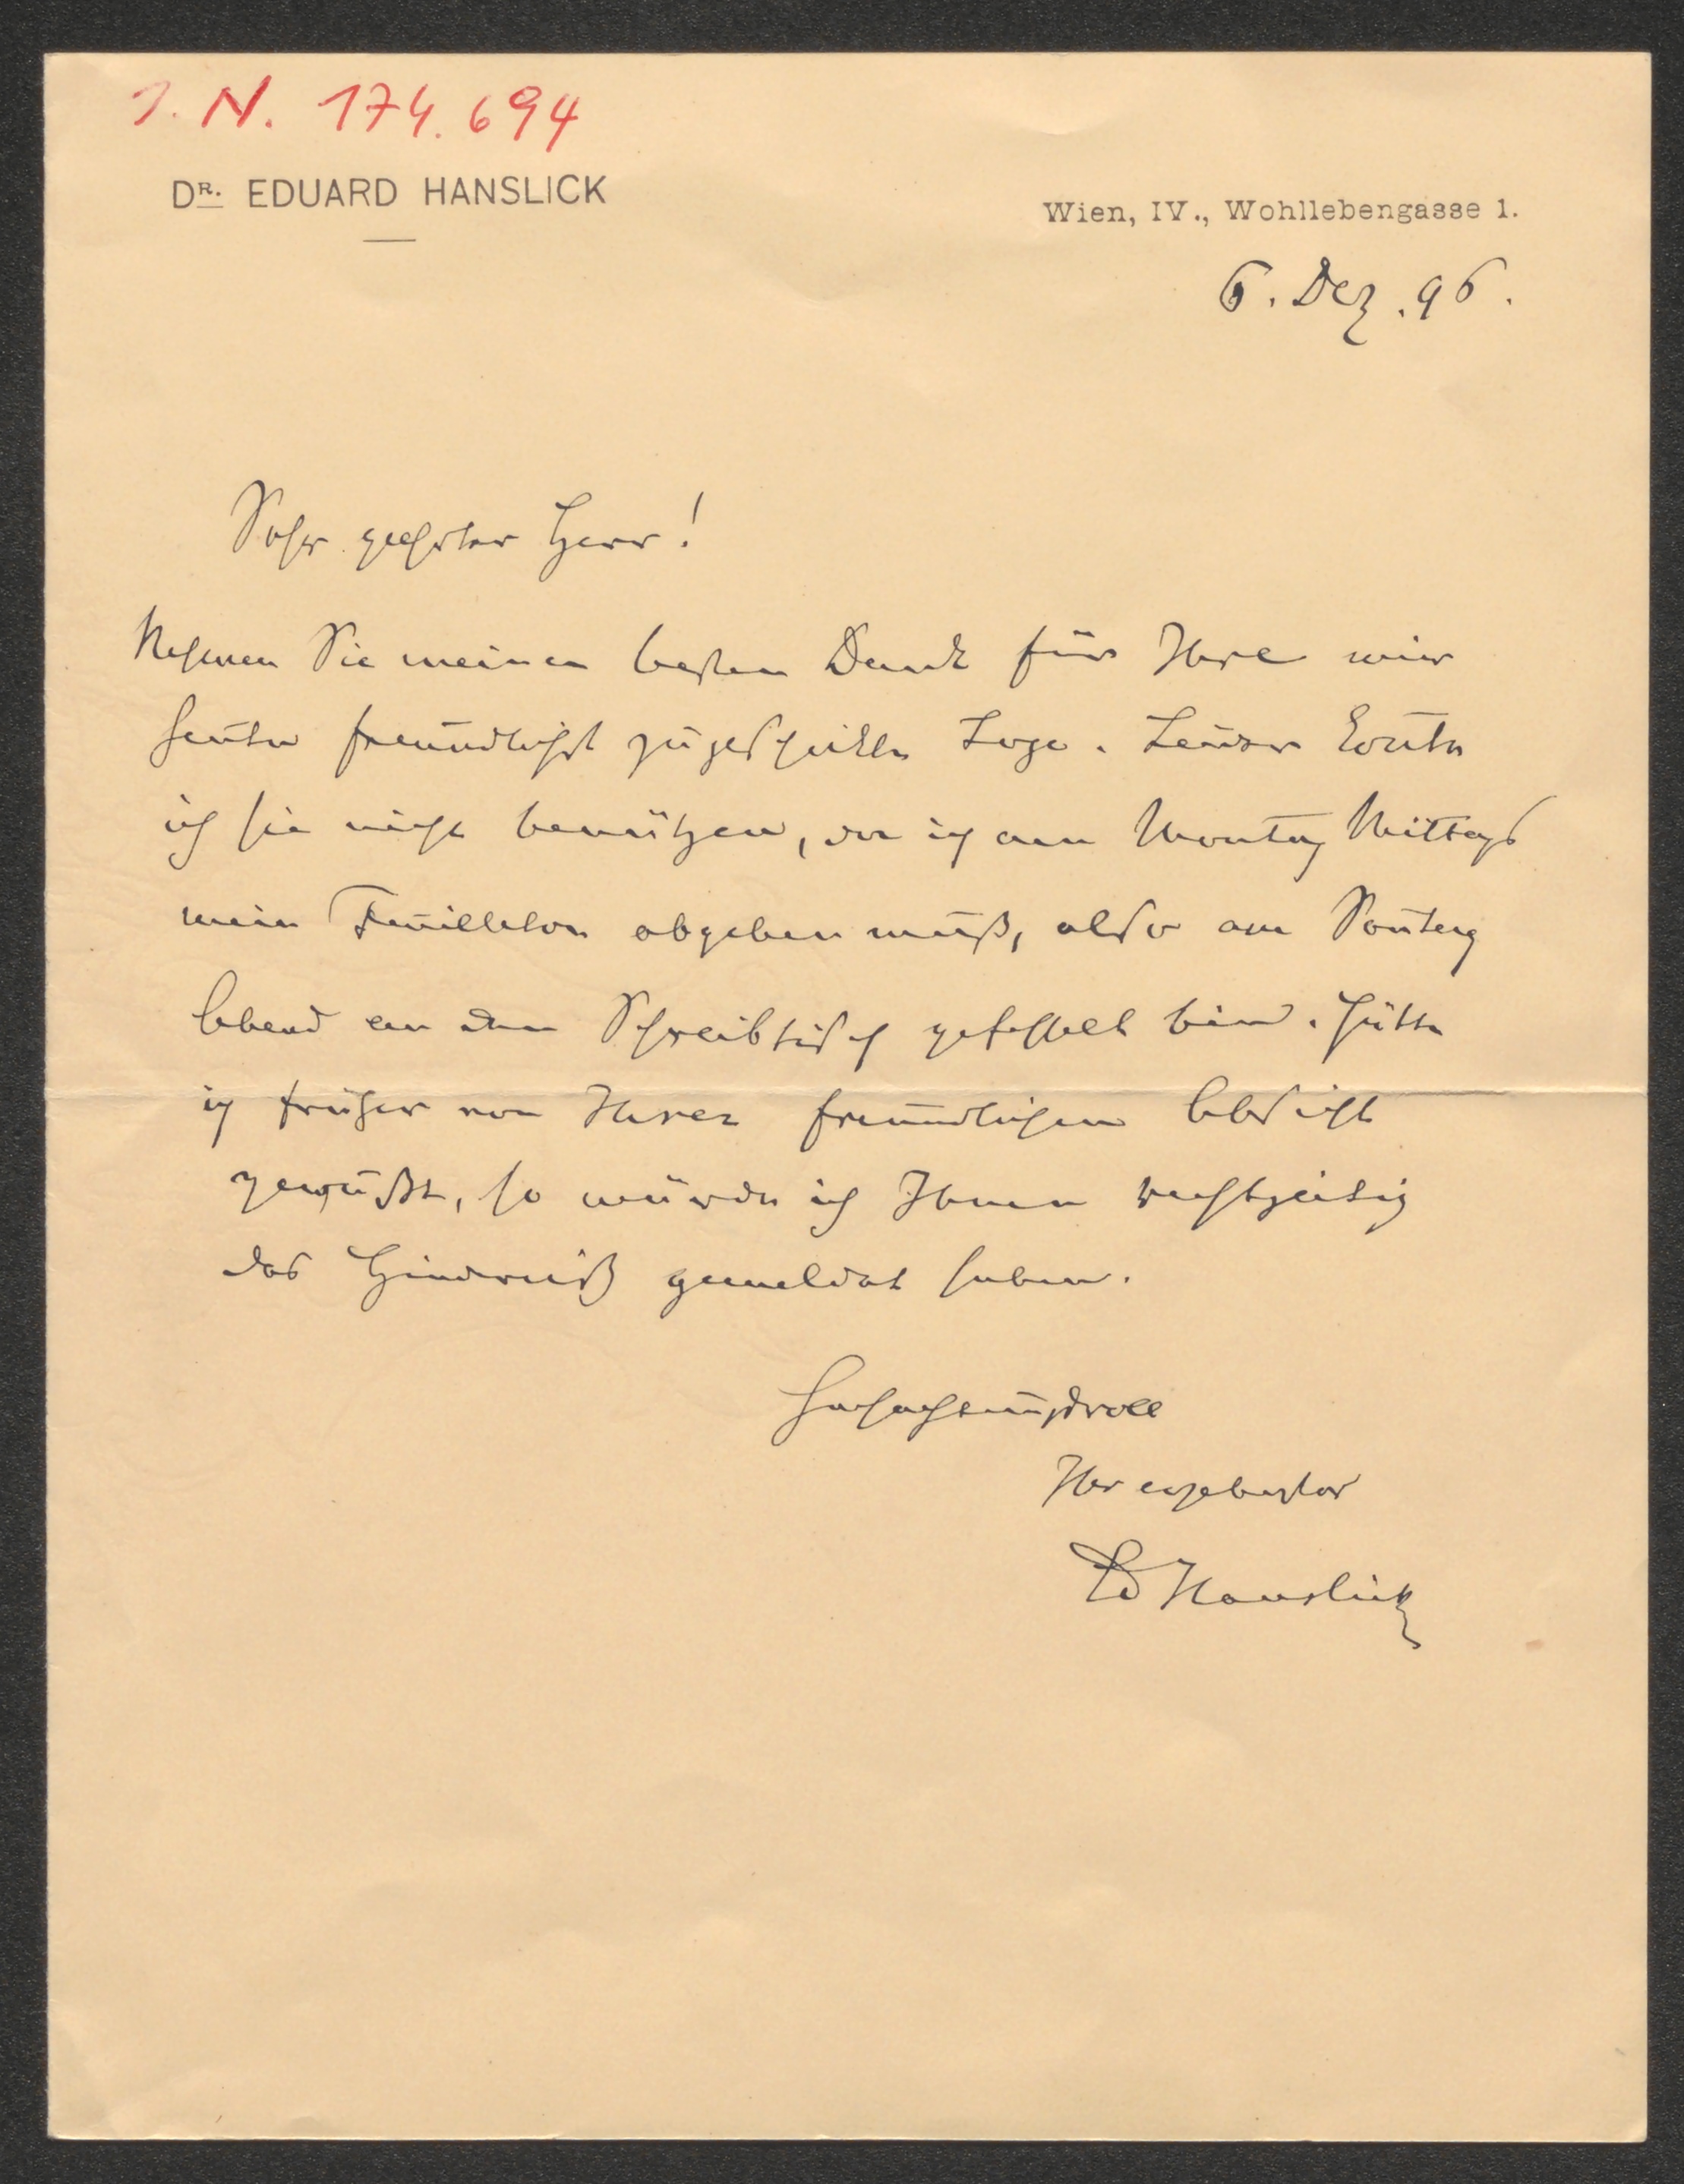 I. N. 174.694
DR. EDUARD HANSLICK
Wien, IV., Wohllebengasse 1.
6. Dez. 96.
Sehr geehrter Herr!
Nehmen Sie meinen besten Dank für Ihre mir
heute freundlichst zugeschickte Loge. Leider konnte
ich sie nicht benützen, da ich am Montag Mittags
mein Feuilleton abgeben muß, also am Sontag
Abend an den Schreibtisch gefesselt bin. Hätte
ich früher von Ihrer freundlichen Absicht
gewußt, so würde ich Ihnen rechtzeitig
das Hinderniß gemeldet haben.
Hochachtungsvoll
Ihr ergebenster
Ed Hanslick